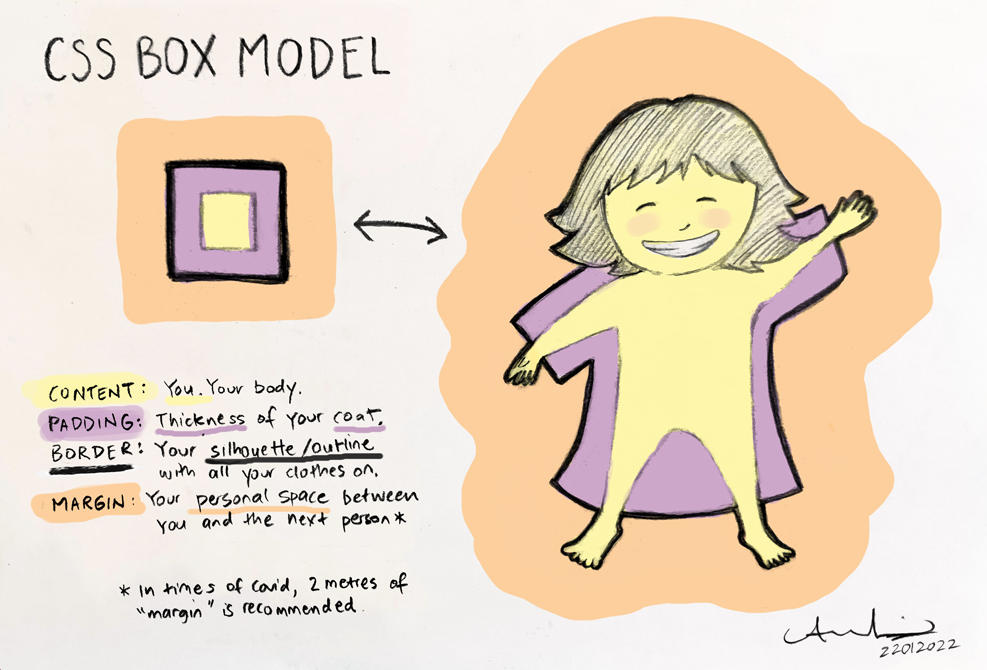 CSS BOX MODEL
CONTENT: You. Your body.
PADDING: Thickness of your coat.
BORDER: Your silhouette/outline
with all your clothes on.
MARGIN: Your personal space between
you and the next person*
* In times of covid, 2 metres of
"margin" is recommended.
22012022